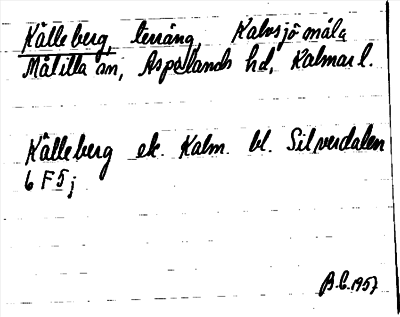 Kålleberg, terräng, Kalvsjömåla
Målilla sn, Aspelands hd, Kalmar l.
Kålleberg ek. Kalm. bl. Silverdalen
6 F 5 j
B.C. 1957